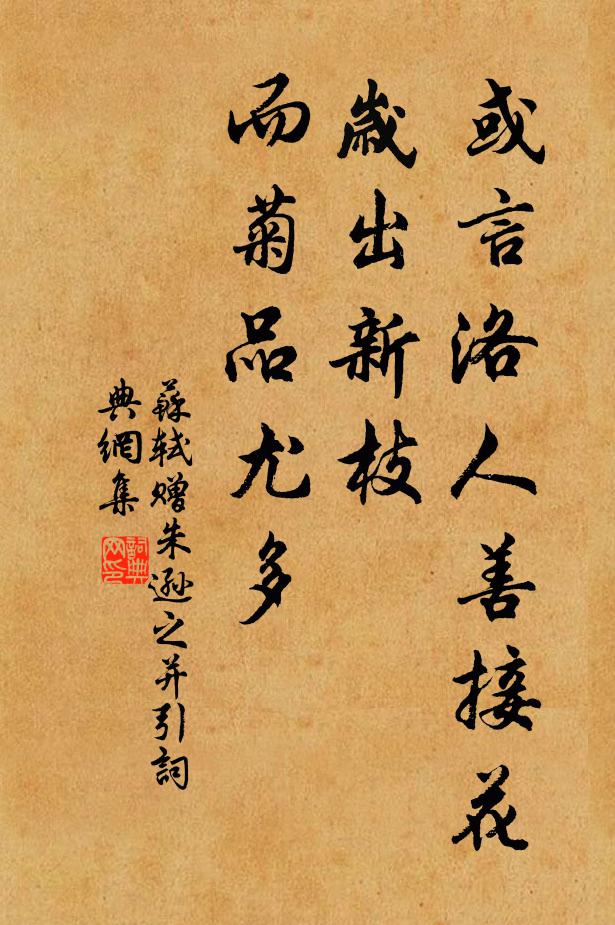 或言洛人善接花
歲出新枝
而菊品尤多
蘇軾贈朱遜之并引詞
典網集
詞典
网印